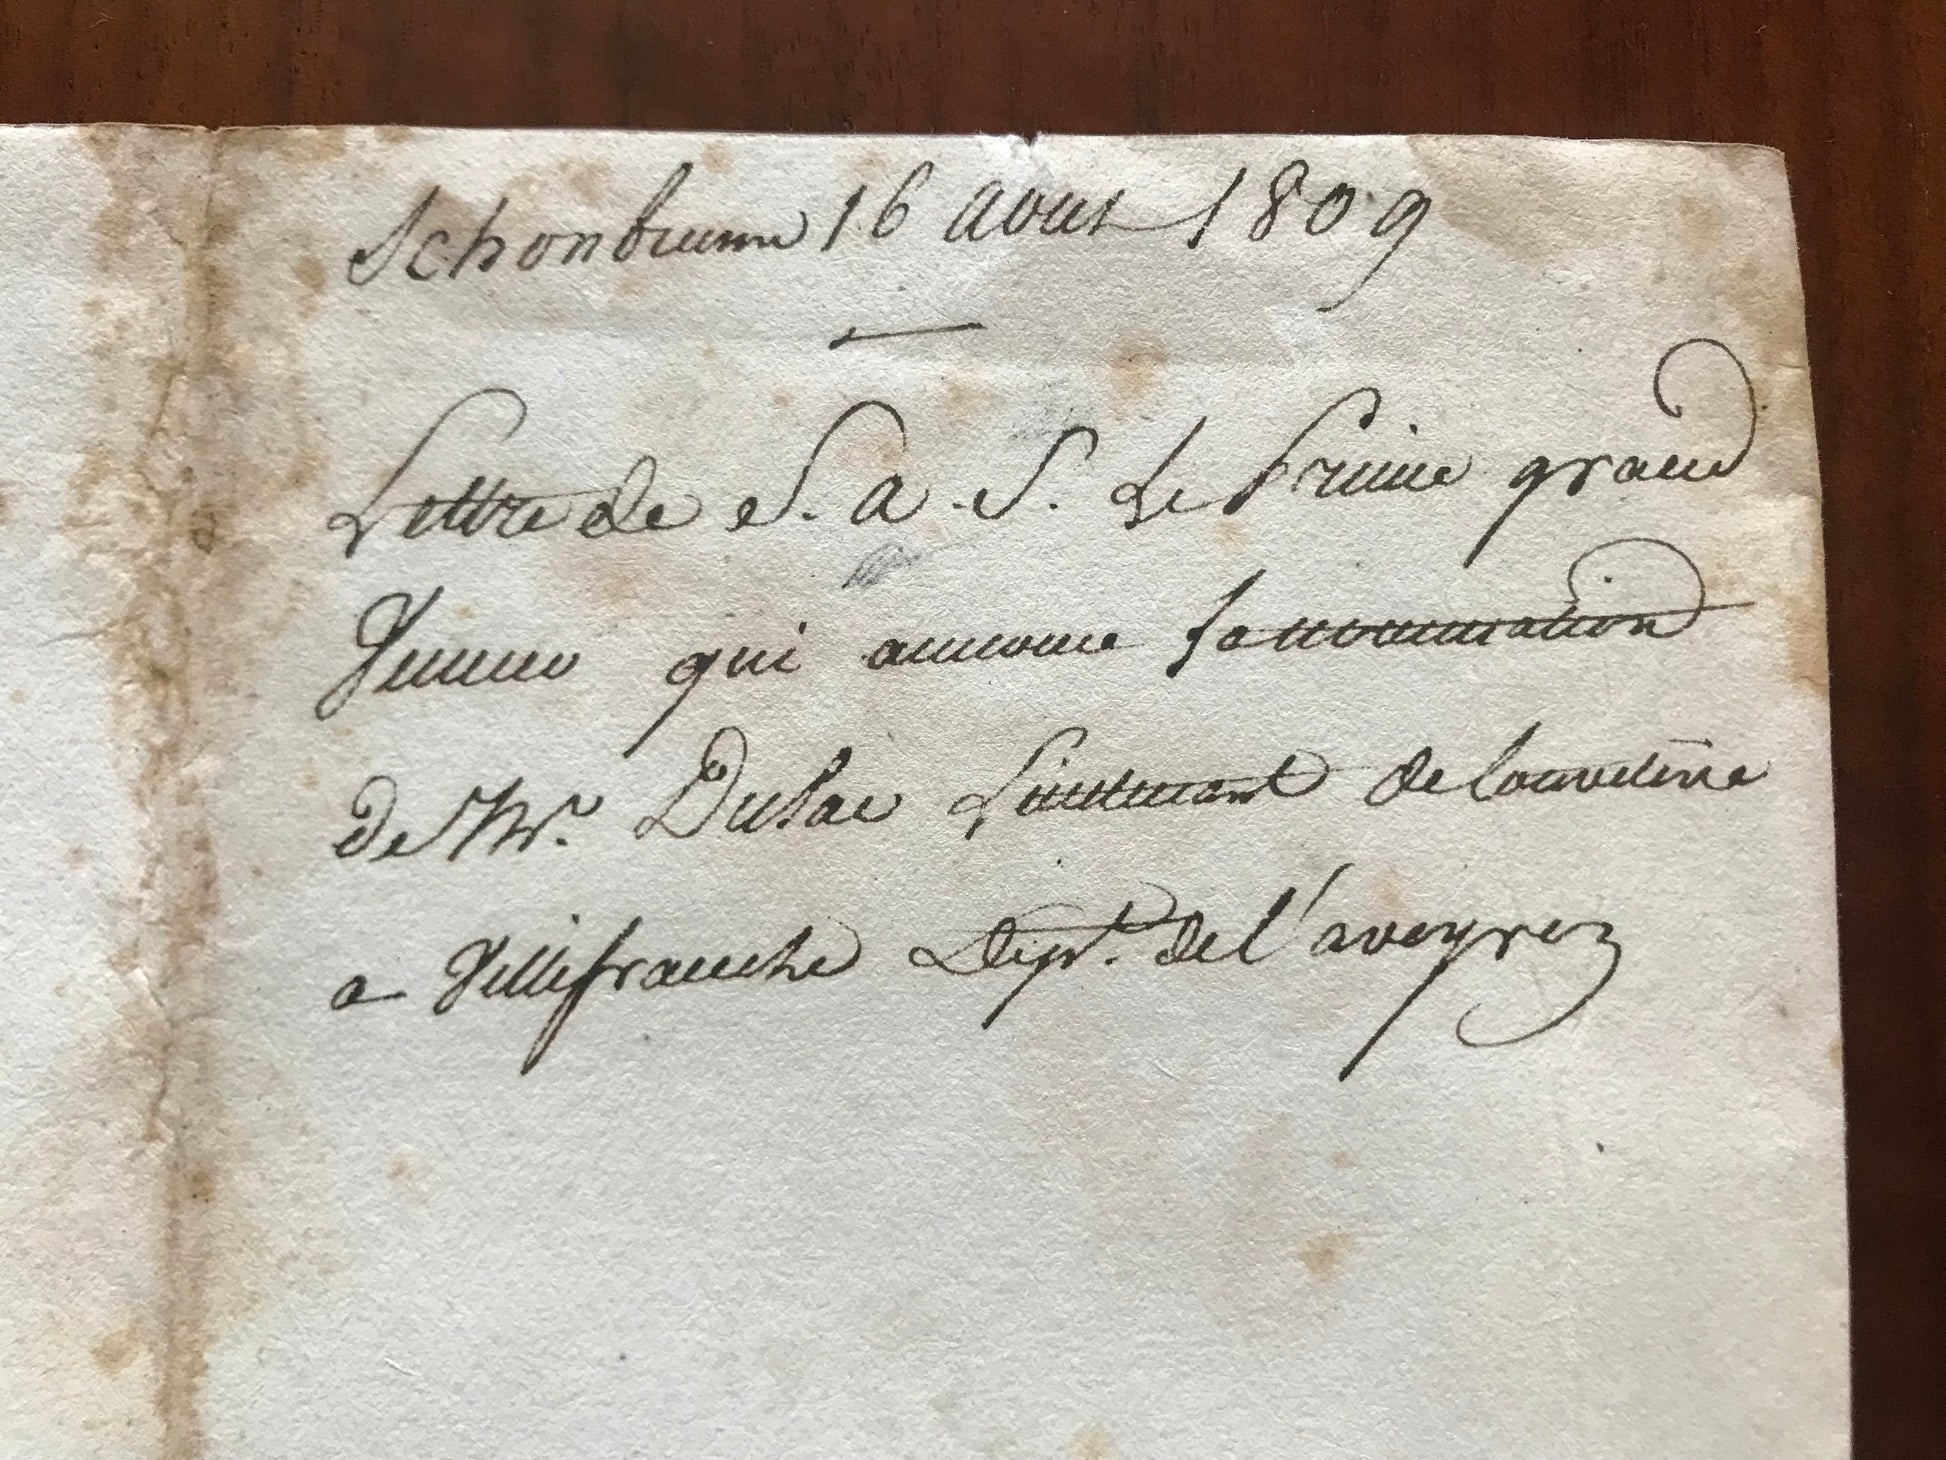 Schonbrunn 16 aout 1809
Lettre de S. a. S. Le Prince grand
Veneur qui annonce la nomination
de Mr. Dulac Lieutenant de louveterie
a Villefranche Dept. de l'aveyron